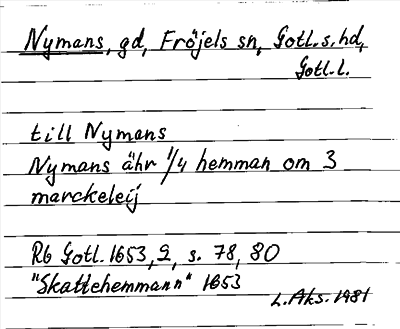 Nymans, gd, Fröjels sn, Gotl.s.hd,
Gotl.l.
till Nymans
Nymans ähr 1/4 hemman om 3
marckeleij
Rb Gotl. 1653, 2, s. 78, 80
"Skattehemmann" 1653
L. Aks. 1981